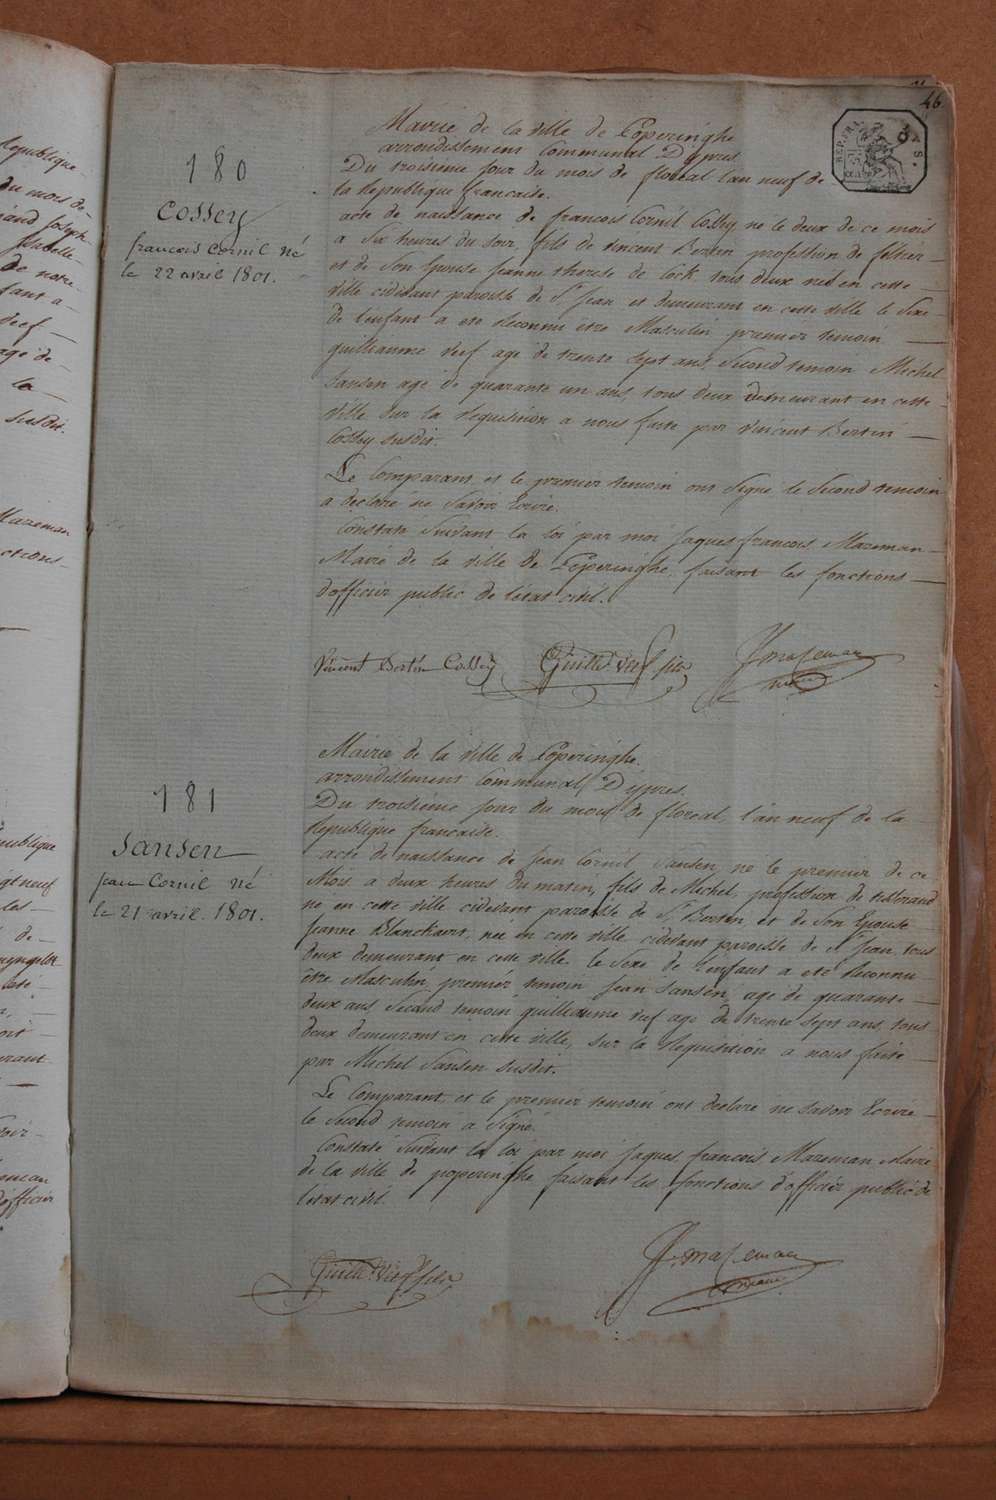 46
REP. FRA.
180
Cossey
francois Cornil né
le 22 avril 1801.
Mairie de la ville de Poperinghe
arrondissement Communal D'ypres
Du troisieme jour du mois de floreal l'an neuf de
la Republique francaise.
acte de naissance de francois Cornil Cossey né le deux de ce mois
a Six heures du soir, fils de vincent Bertin profession de
et de Son Epouse jeanne therese de cock tous deux nés en cette
ville cidevant paroisse de St Jean et demeurant en cette ville le Sexe
de l'enfant a eté reconnu être Masculin premier temoin
guilliaume veef agé de trente sept ans, Second temoin Michel
Sansen agé de quarante un ans, tous deux demeurant en cette
ville sur la requisition a nous faite par vincent Bertin
Cossey susdit.
Le Comparant et le premier temoin ont Signé le Second temoin
a declaré ne Savoir Ecrire.
Constaté Suivant la loi par moi jaques francois Mazeman
Maire de la ville de Poperinghe faisant les fonctions
d'officier public de l'etat civil.
Vincent Bertin Cossey Guille Veef fils J. mazeman
maire
181
Sansen
jean Cornil né
le 21 avril 1801.
Mairie de la ville de Poperinghe
arrondissement Communal D'ypres.
Du troisieme jour du mois de floreal l'an neuf de la
Republique francaise.
acte de naissance de jean Cornil Sansen né le premier de ce
Mois a deux heures du matin, fils de Michel, profession de tisserand
né en cette ville cidevant paroisse de St Bertin et de Son Epouse
jeanne Blanckaert, née en cette ville cidevant paroisse de St jean tous
deux demeurant en cette ville. le Sexe de l'enfant a eté reconnu
être Masculin, premier temoin jean Sansen, agé de quarante
deux ans Second temoin guilliaume veef agé de trente sept ans, tous
deux demeurant en cette ville, sur la requisition a nous faite
par Michel Sansen susdit.
Le Comparant et le premier temoin ont declaré ne savoir Ecrire
le Second temoin a Signé.
Constaté Suivant la loi par moi jaques francois Mazeman Maire
de la ville de poperinghe faisant les fonctions d'officier public de
l'etat civil.
Guille Veef fils J. mazeman
maire